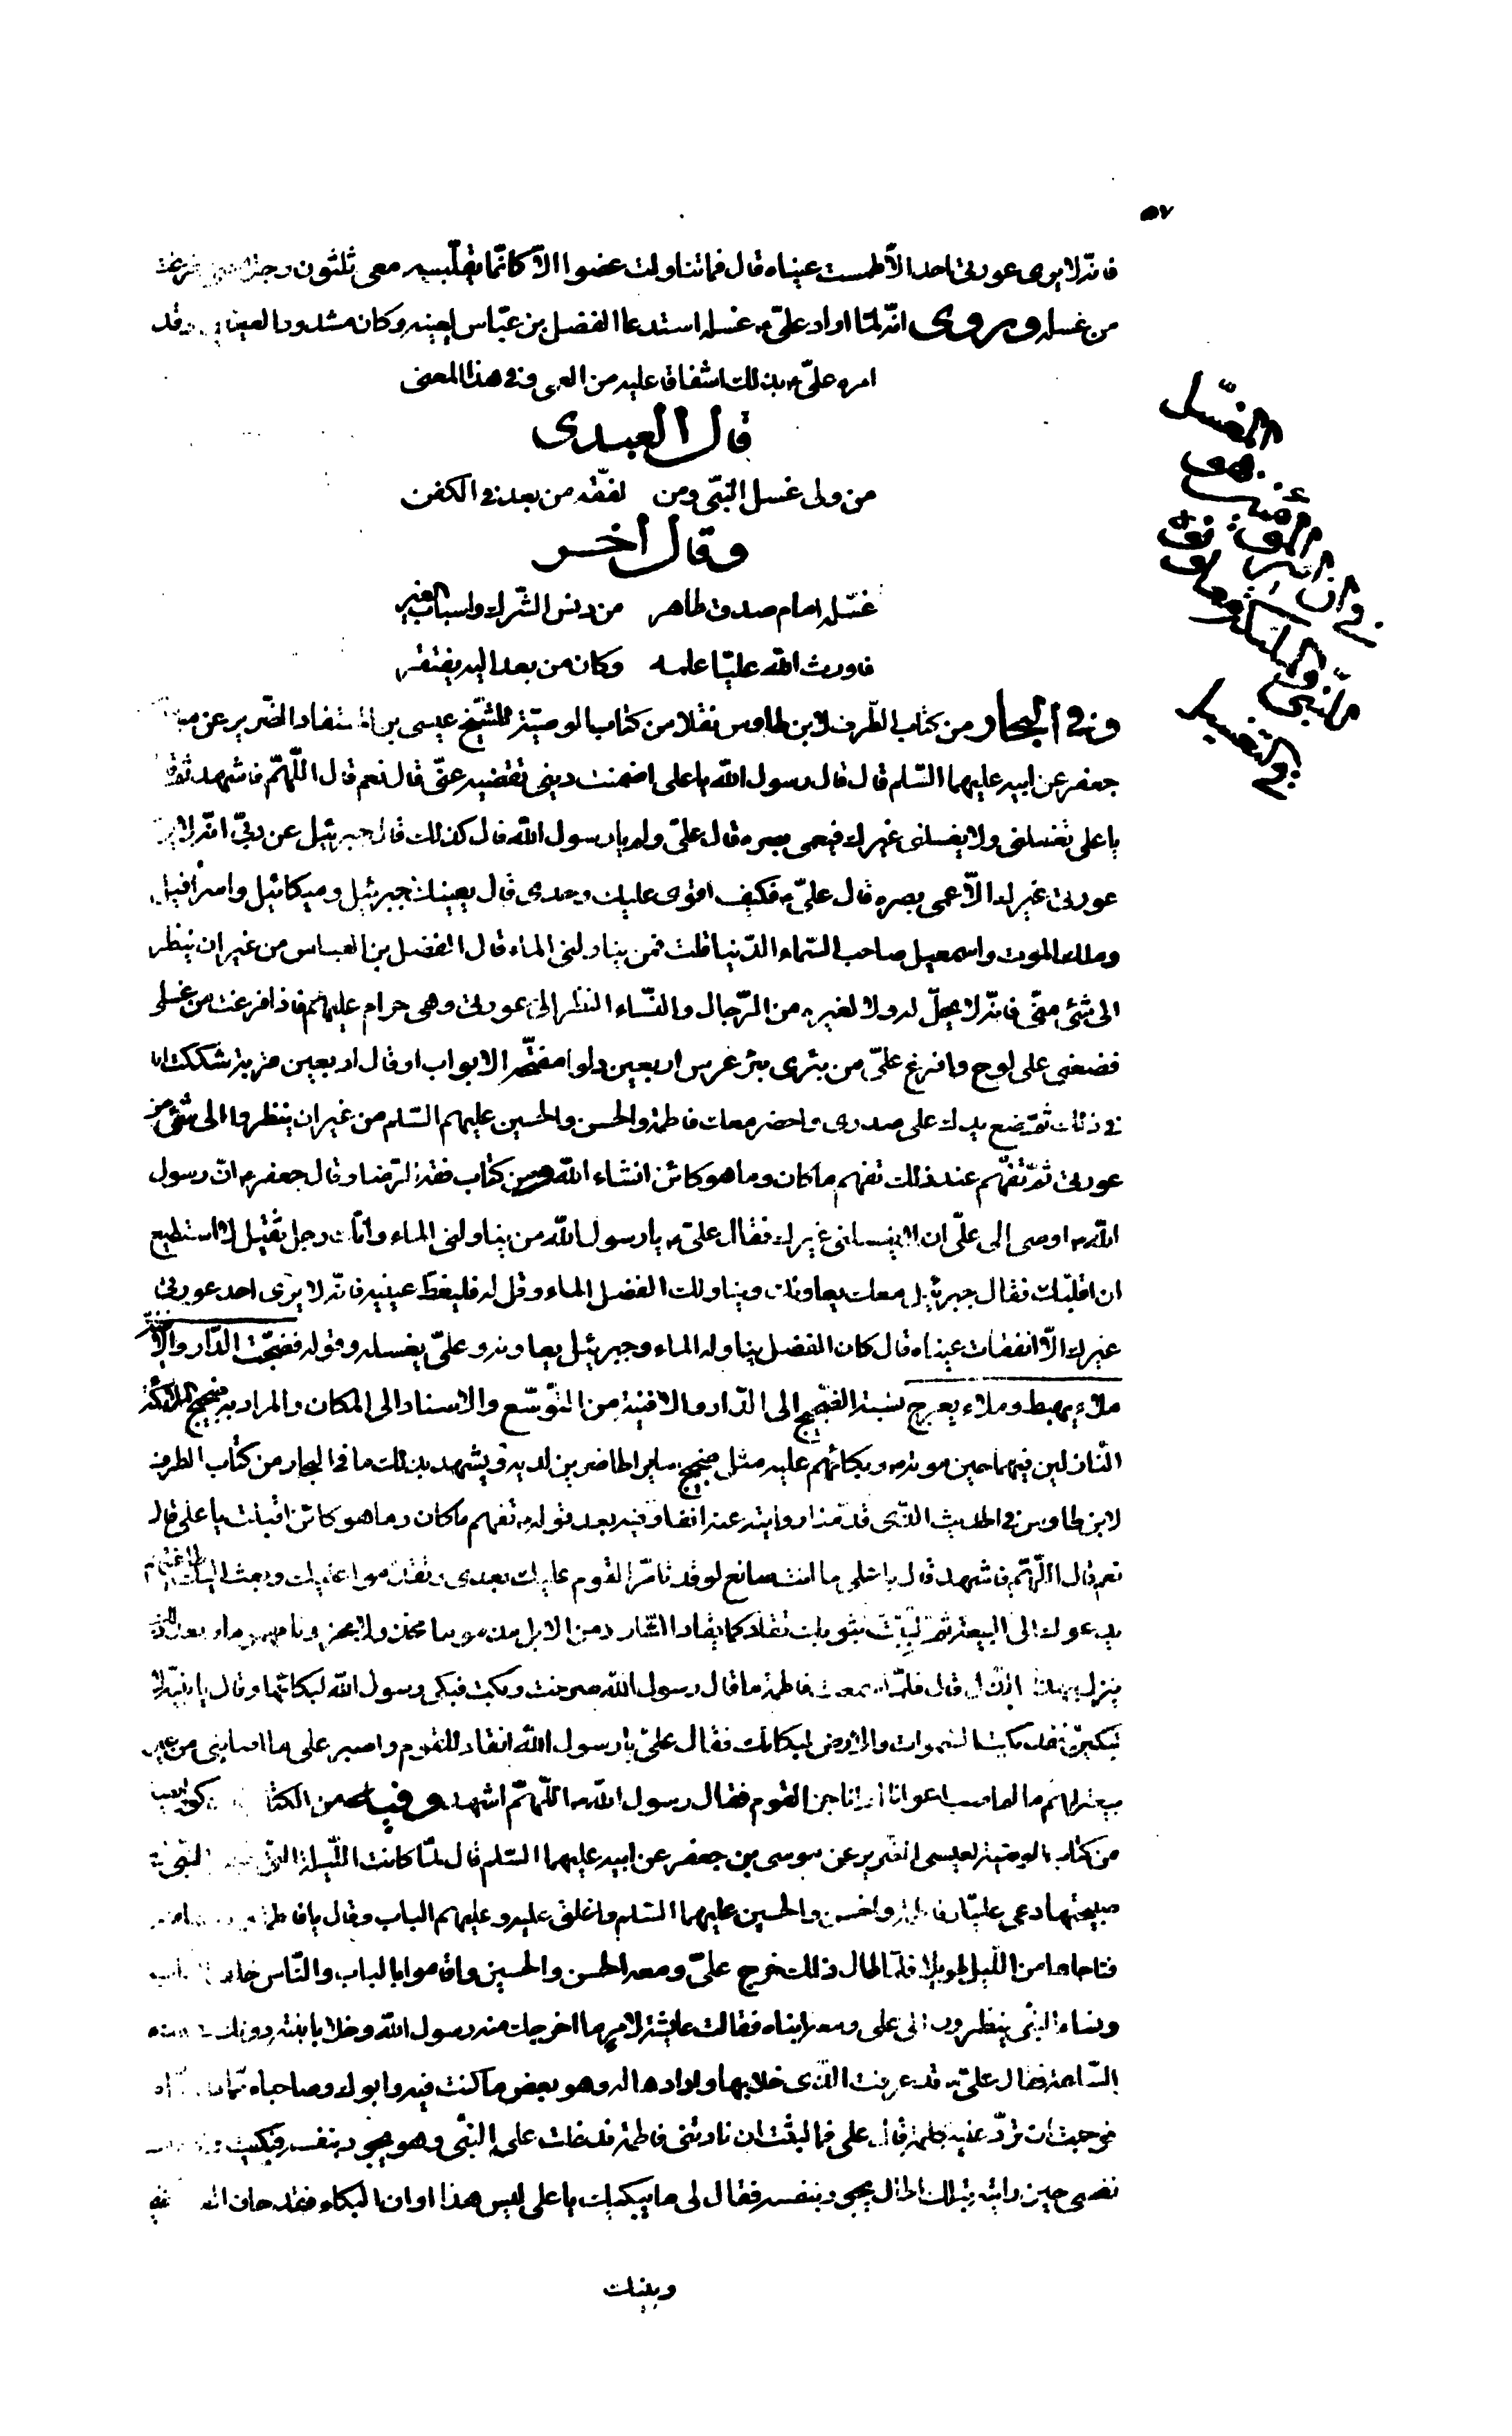 ٥٧
فانّه لا يرى عورتى احد الّا طمست عيناه قال فما تناولت عضوا الّا كانّما يقلّبه معى ثلثون رجلا حتى فرغت
من غسله وروى انّه لمّا اراد علىّ ع غسله استدعا الفضل بن عبّاس ليعينه وكان مشدود العينين وقد
امره علىّ ع بذلك اشفاقا عليه من العمى وفى هذا المعنى
قال العبدى
من ولى غسل النبىّ ومن لفّفه من بعد فى الكفن
وقال اخر
غسّله امام صدق طاهر من دنس الشّرك واسباب الغير
فاورث اللّه عليّا علمه وكان من بعد اليه يفتقر
وفى البحار من كتاب الطّرف لابن طاوس نقلا من كتاب الوصيّة للشّيخ عيسى بن المستفاد الضّرير عن
جعفر عن ابيه عليهما السّلم قال قال رسول اللّه يا على اضمنت دينى تقضيه عنّى قال نعم قال اللّهمّ فاشهد ثمّ قال
يا على تغسلنى ولا يغسلنى غيرك فيعمى بصره قال علىّ ولم يا رسول اللّه قال كذلك قال جبرئيل عن ربّى انّه لا يرى
عورتى غيرك الّا عمى بصره قال علىّ ع فكيف اقوى عليك وحدى قال يعينك جبرئيل وميكائيل واسرافيل
وملك الموت واسمعيل صاحب السّماء الدّنيا قلت فمن يناولنى الماء قال الفضل بن العباس من غير ان ينظر
الى شئ منّى فانّه لا يحلّ له ولا لغيره من الرّجال والنّساء النظر الى عورتى وهى حرام عليهم فاذا فرغت من غسلى
فضعنى على لوح وافرغ علىّ من بئرى بئر غرس اربعين دلوا مفتّحة الابواب او قال اربعين قربة شككت انا
فى ذلك ثمّ ضع يدك على صدرى واحضر معك فاطمة والحسن والحسين عليهم السّلم من غير ان ينظروا الى شئ من
عورتى ثمّ تفهّم عند ذلك تفهم ما كان وما هو كائن انشاء اللّه ومن كتاب فقه الرّضا وقال جعفر ع انّ رسول
اللّه ص اوصى الى علىّ ان لا يغسلنى غيرك فقال علىّ ع يا رسول اللّه من يناولنى الماء وانّك رجل ثقيل لا استطيع
ان اقلّبك فقال جبرئيل معك يعاونك ويناولك الفضل الماء وقل له فليغطّ عينيه فانّه لا يرى احد عورتى
غيرك الّا انفقأت عيناه قال كان الفضل يناوله الماء وجبرئيل يعاونه وعلىّ يغسله وقوله فضجّت الدّار والافنية
ملاء يهبط وملاء يعرج نسبة الضّجيج الى الدّار والافنية من التّوسّع والاسناد الى المكان والمراد به ضجيج الملائكة
النّازلين فيهما حين موته ص وبكائهم عليه مثل ضجيج ساير الحاضرين لديه ويشهد بذلك ما فى البحار من كتاب الطرف
لابن طاوس فى الحديث الذى قدّمنا روايته عنه انفا وفيه بعد قوله ص تفهم ما كان وما هو كائن اقبلت يا على قال
نعم قال اللّهمّ فاشهد قال يا على ما انت صانع لو قد تامّر القوم عليك بعدى وتقدّموا عليك وبعث اليك طاغيتهم
يدعوك الى البيعة ثمّ لبّبت بثوبك تقاد كما يقاد الشّارد من الابل
قال فلمّا سمعت فاطمة ما قال رسول اللّه صرخت وبكت فبكى رسول اللّه لبكائها وقال يا بنيّة لا
تبكين فقد بكت السّموات والارض لبكائك فقال علىّ يا رسول اللّه انقاد للقوم واصبر على ما اصابنى من غير
بيعة لهم ما لم اصب اعوانا لم اناجز القوم فقال رسول اللّه ص اللّهمّ اشهد وفيه من الكتاب
من كتاب الوصيّة لعيسى الضّرير عن موسى بن جعفر عن ابيه عليهما السّلم قال لمّا كانت اللّيلة التى قبض النّبى فى
صبيحتها دعى عليّا وفاطمة والحسن والحسين عليهما السّلم واغلق عليه وعليهم الباب وقال يا فاطمة
فناجاها من اللّيل طويلا فلمّا طال ذلك خرج علىّ ومعه الحسن والحسين واقاموا بالباب والنّاس خلف الباب
ونساء النبّى ينظرون الى على ومعه ابناه فقالت عايشة لامر ما اخرجك منه رسول اللّه وخلا بابنته دونك هذه
السّاعة فقال علىّ ع قد عرفت الذى خلا بها وارادها له وهو بعض ما كنت فيه وابوك وصاحباه
فوجمت ان تردّ عليه كلمة قال على فما لبثت ان نادتنى فاطمة فدخلت على النبّى وهو يجود بنفسه فبكيت
نفسى حين رايته بتلك الحال يجود بنفسه فقال لى ما يبكيك يا على ليس هذا اوان البكاء فقد حان
وبينك